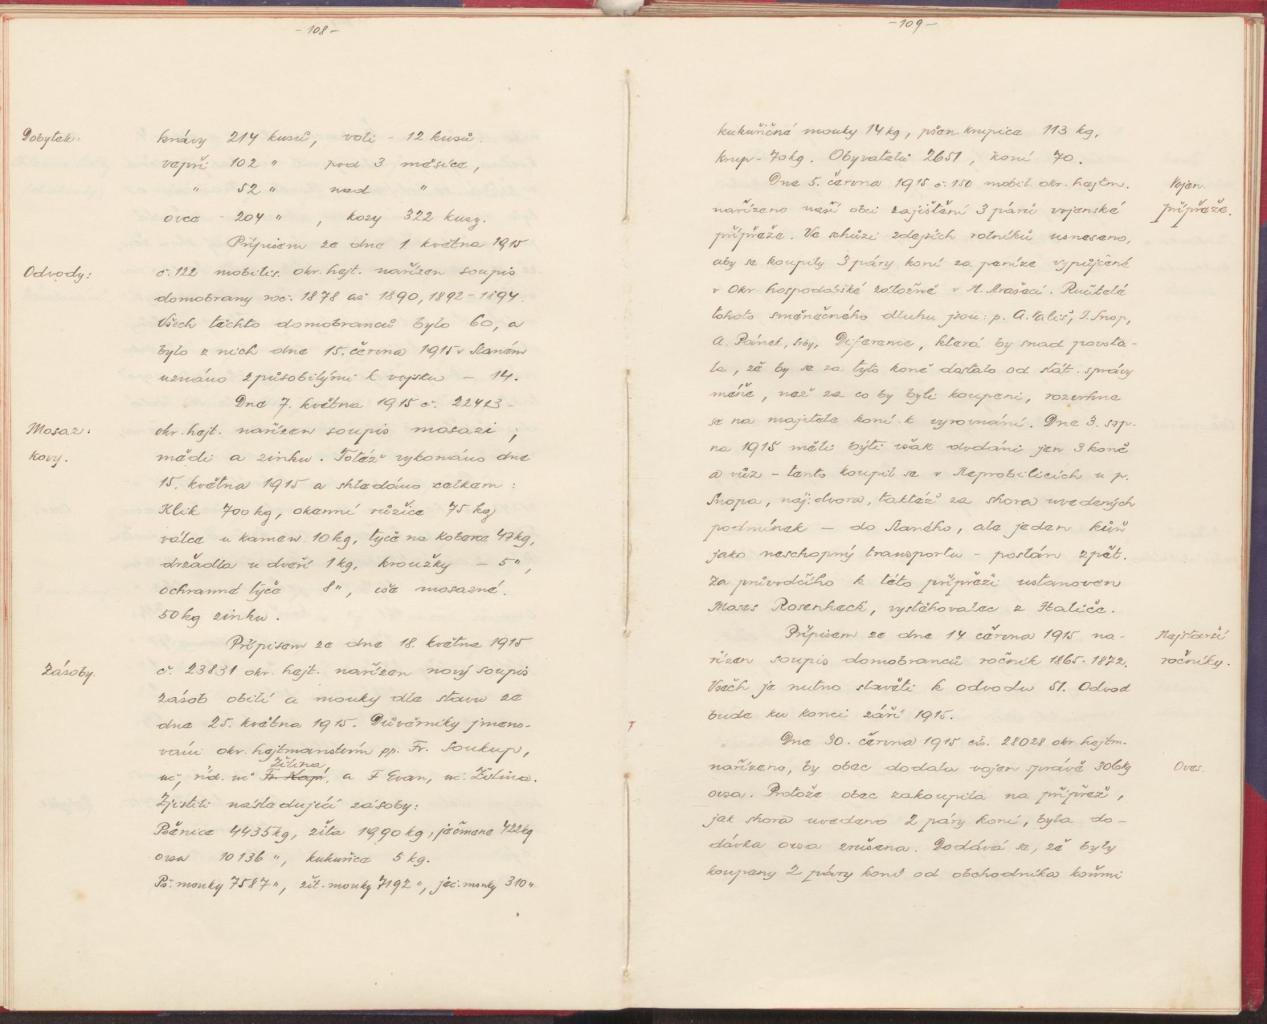 - 108 -
Dobytek.
krávy 214 kusů, voli - 12 kusů
vepři 102 " pod 3 měsíce,
" 52 " nad "
ovce - 204 " , kozy 322 kusy.
Přípisem ze dne 1 května 1915
Odvody:
č. 122 mobilis. okr. hejt. nařízen soupis
domobrany roč. 1878 až 1890, 1892-1894.
Všech těchto domobranců bylo 60, a
bylo z nich dne 15. června 1915 v Slaném
uznáno způsobilými k vojsku - 14.
Dne 7. května 1915 č. 22423 -
Mosaz.
okr. hejt. nařízen soupis mosazi,
kovy.
mědi a zinku. Totéž vykonáno dne
15. května 1915 a shledáno celkem:
Klik 700 kg, okenní růžice 75 kg
válce u kamen 10 kg, tyče na koberce 47 kg,
držadla u dveří 1 kg, kroužky - 5 ",
ochranné tyče 8 ", vše mosazné.
50 kg zinku.
Přípisem ze dne 18. května 1915
Zásoby.
č. 23831 okr. hejt. nařízen nový soupis
zásob obilí a mouky dle stavu ze
dne 25. května 1915. Důvěrníky jmeno-
váni okr. hejtmanstvím pp. Fr. Soukup,
Žilina,
uč., říd. uč. Fr. Kap. a F Evan, uč. Žilina.
Zjistili následující zásoby:
Pšenice 4435 kg, žita 1990 kg, ječmene 422 kg
ovsa 10136 ", kukuřice 5 kg.
Pš. mouky 7587 ", žit. mouky 7192 ", ječ. mouky 310 "
- 109 -
kukuřičné mouky 14 kg, pšen. krupice 113 kg,
krup - 70 kg. Obyvatelů 2651, koní 70.
Dne 5. června 1915 č. 150 mobil. okr. hejtm.
Vojen.
nařízeno naší obci zajištění 3 párů vojenské
přípřeže.
přípřeže. Ve schůzi zdejších rolníků usneseno,
aby se koupily 3 páry koní za peníze vypůjčené
v Okr hospodářské záložně v N. Strašecí. Ručitelé
tohoto směnečného dluhu jsou: p. A. Vališ, J. Snop,
A. Pánek, Diference, která by snad povsta-
la, že by se za tyto koně dostalo od stát. správy
méně, než za co by byli koupeni, rozvrhne
se na majitele koní k vyrovnání. Dne 3. srp.
na 1915 měli býti však dodáni jen 3 koně
a vůz - tento koupil se v Neprobilicích u p.
Snopa, náj. dvora, taktéž za shora uvedených
podmínek - do Slaného, ale jeden kůň
jako neschopný transportu - poslán zpět.
Za průvodčího k této přípřeži ustanoven
Moses Rosenheck, vystěhovalec z Haliče.
Přípisem ze dne 14 června 1915 na-
Nejstarší
řízen soupis domobranců ročník 1865-1872.
ročníky.
Všech je nutno stavěti k odvodu 51. Odvod
bude ku konci září 1915.
Dne 30. června 1915 čís. 28028 okr. hejtm.
Oves
nařízeno, by obec dodala vojen správě 306 kg
ovsa. Protože obec zakoupila na přípřež,
jak shora uvedeno 2 páry koní, byla do-
dávka ovsa zrušena. Dodává se, že byly
koupeny 2 páry koní od obchodníka koňmi